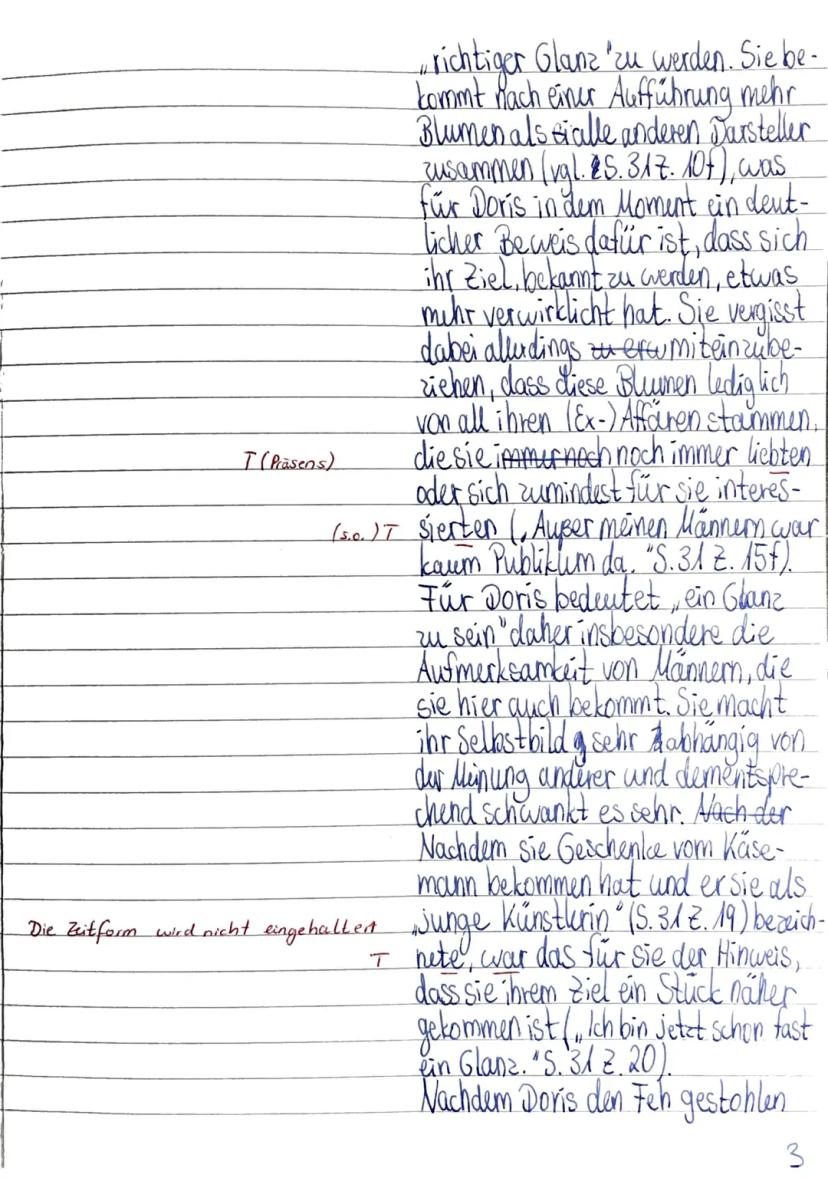 „richtiger Glanz" zu werden. Sie be-
kommt nach einer Aufführung mehr
Blumen als alle anderen Darsteller
zusammen (vgl. S. 31 Z. 10f), was
für Doris in dem Moment ein deut-
licher Beweis dafür ist, dass sich
ihr Ziel, bekannt zu werden, etwas
mehr verwirklicht hat. Sie vergisst
dabei allerdings miteinzube-
ziehen, dass diese Blumen lediglich
von all ihren (Ex-) Affären stammen,
T (Präsens) die sie immer noch noch immer liebten
oder sich zumindest für sie interes-
(s.o.) T sierten („Außer meinen Männern war
kaum Publikum da." S. 31 Z. 15f).
Für Doris bedeutet „ein Glanz
zu sein" daher insbesondere die
Aufmerksamkeit von Männern, die
sie hier auch bekommt. Sie macht
ihr Selbstbild sehr abhängig von
der Meinung anderer und dementspre-
chend schwankt es sehr. Nach der
Nachdem sie Geschenke vom Käse-
mann bekommen hat und er sie als
Die Zeitform wird nicht eingehalten „junge Künstlerin" (S. 31 Z. 19) bezeich-
T nete, war das für sie der Hinweis,
dass sie ihrem Ziel ein Stück näher
gekommen ist („Ich bin jetzt schon fast
ein Glanz." S. 31 Z. 20).
Nachdem Doris den Feh gestohlen
3